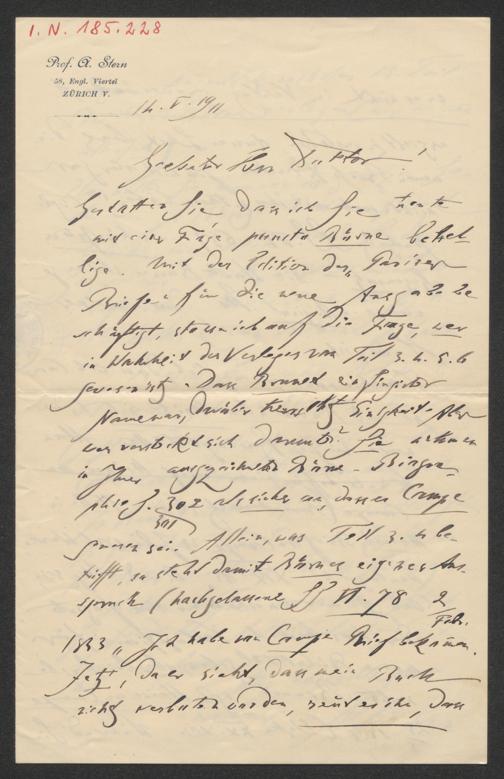 I. N. 185.228
Prof. A. Stern
58, Engl. Viertel
ZÜRICH V.
14. V. 1911
Geehrter Herr Doktor!
Gestatten Sie dass ich Sie heute
mit einer Frage puncto Börne behel-
lige. Mit der Edition der „Pariser
Briefe" für die neue Ausgabe be
schäftigt, stosse ich auf die Frage, wer
in Wahrheit der Verleger von Teil 3. 4. 5. 6
gewesen ist. Dass Brunet ein fingierter
Name war, darüber herrscht Einigkeit. Aber
wer versteckt sich darunter? Sie nehmen
in Ihrer ausgezeichneten Börne-Biogra-
phie S. 302 als sicher an, dass es Campe
301
gewesen sei. Allein, was Teil 3. 4 be-
trifft, so steht damit Börnes eigener Aus-
spruch (Nachgelassene SS VI. 78 2
Febr.
1833 „Ich habe von Campe Brief bekommen.
Jetzt, da er sieht, dass mein Buch
nicht verboten worden, reut es ihn, dass